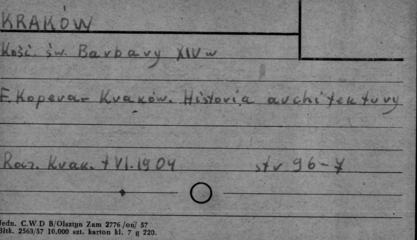 KRAKÓW
Kość. św. Barbary XIV w
F. Kopera - Kraków. Historia architektury
Roz. Krak. t VI. 1904 str 96-7
Jedn. C.W.D B/Olsztyn Zam 2776 /on/ 57
Bltk. 2563/57 10.000 szt. karton kl. 7 g 220.